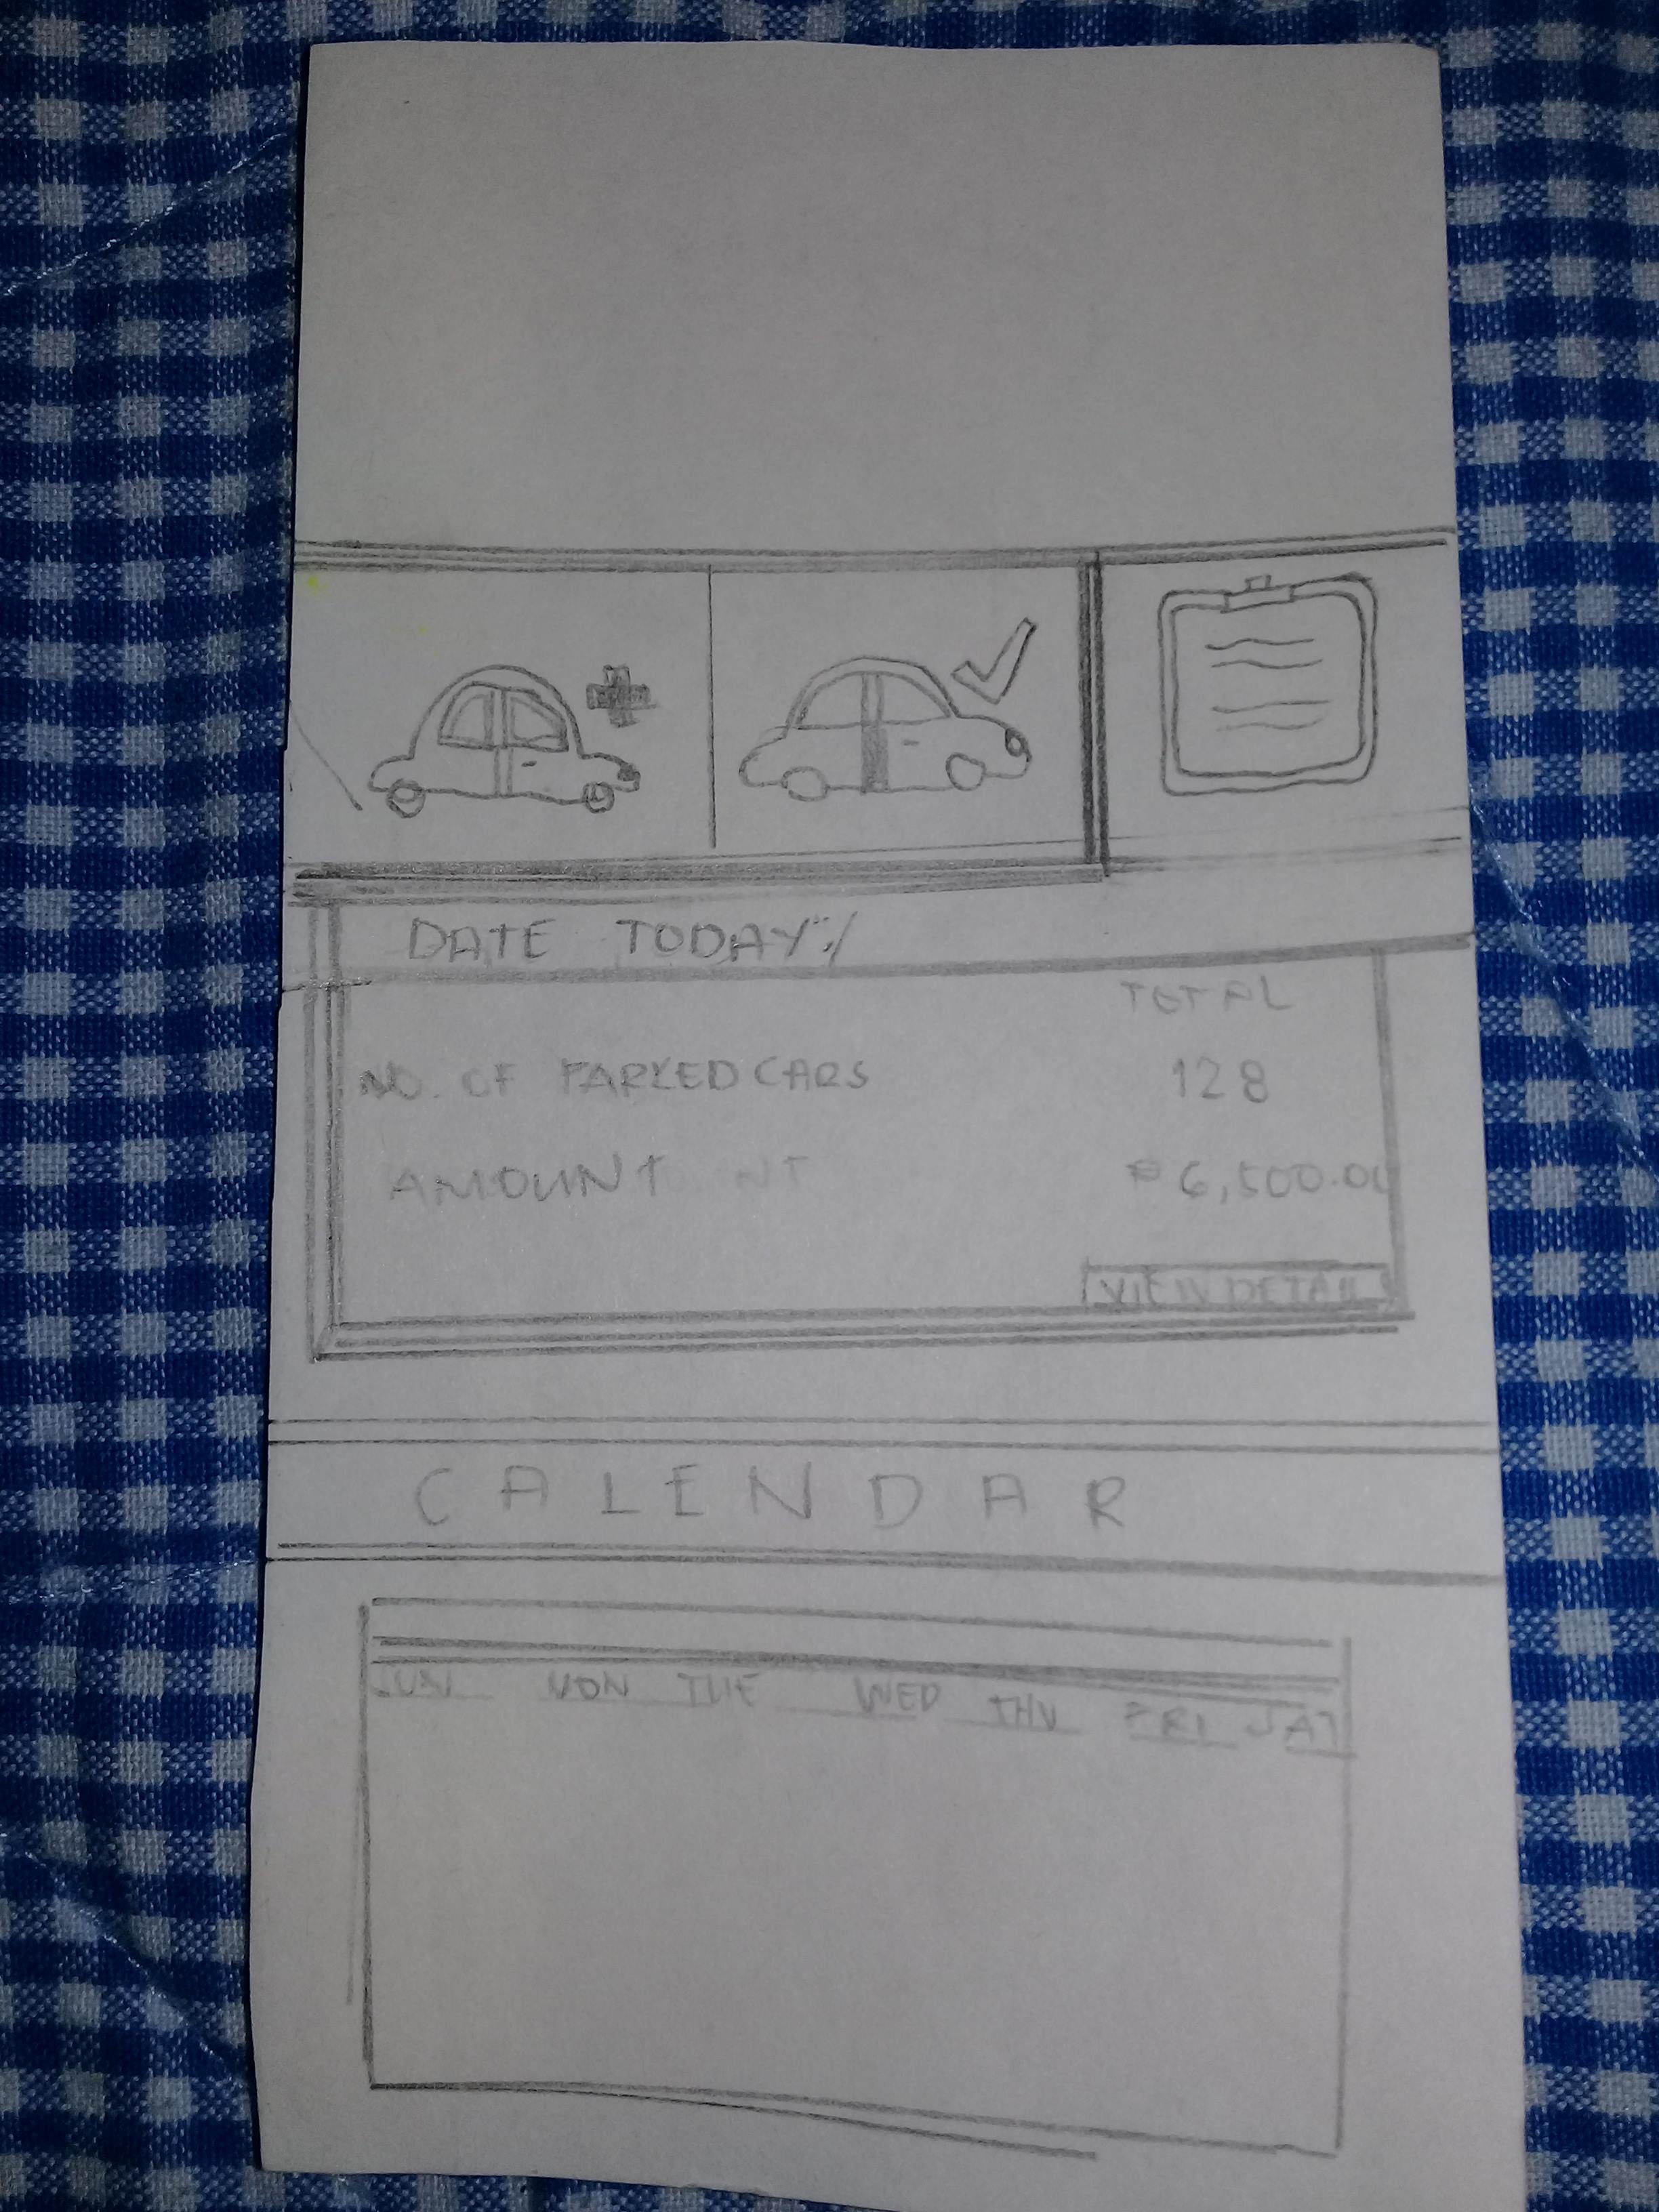 DATE TODAY:/
TOTAL
NO. OF PARKED CARS 128
AMOUNT NT ₱ 6,500.00
VIEW DETAILS
CALENDAR
SUN MON TUE WED THU FRI SAT